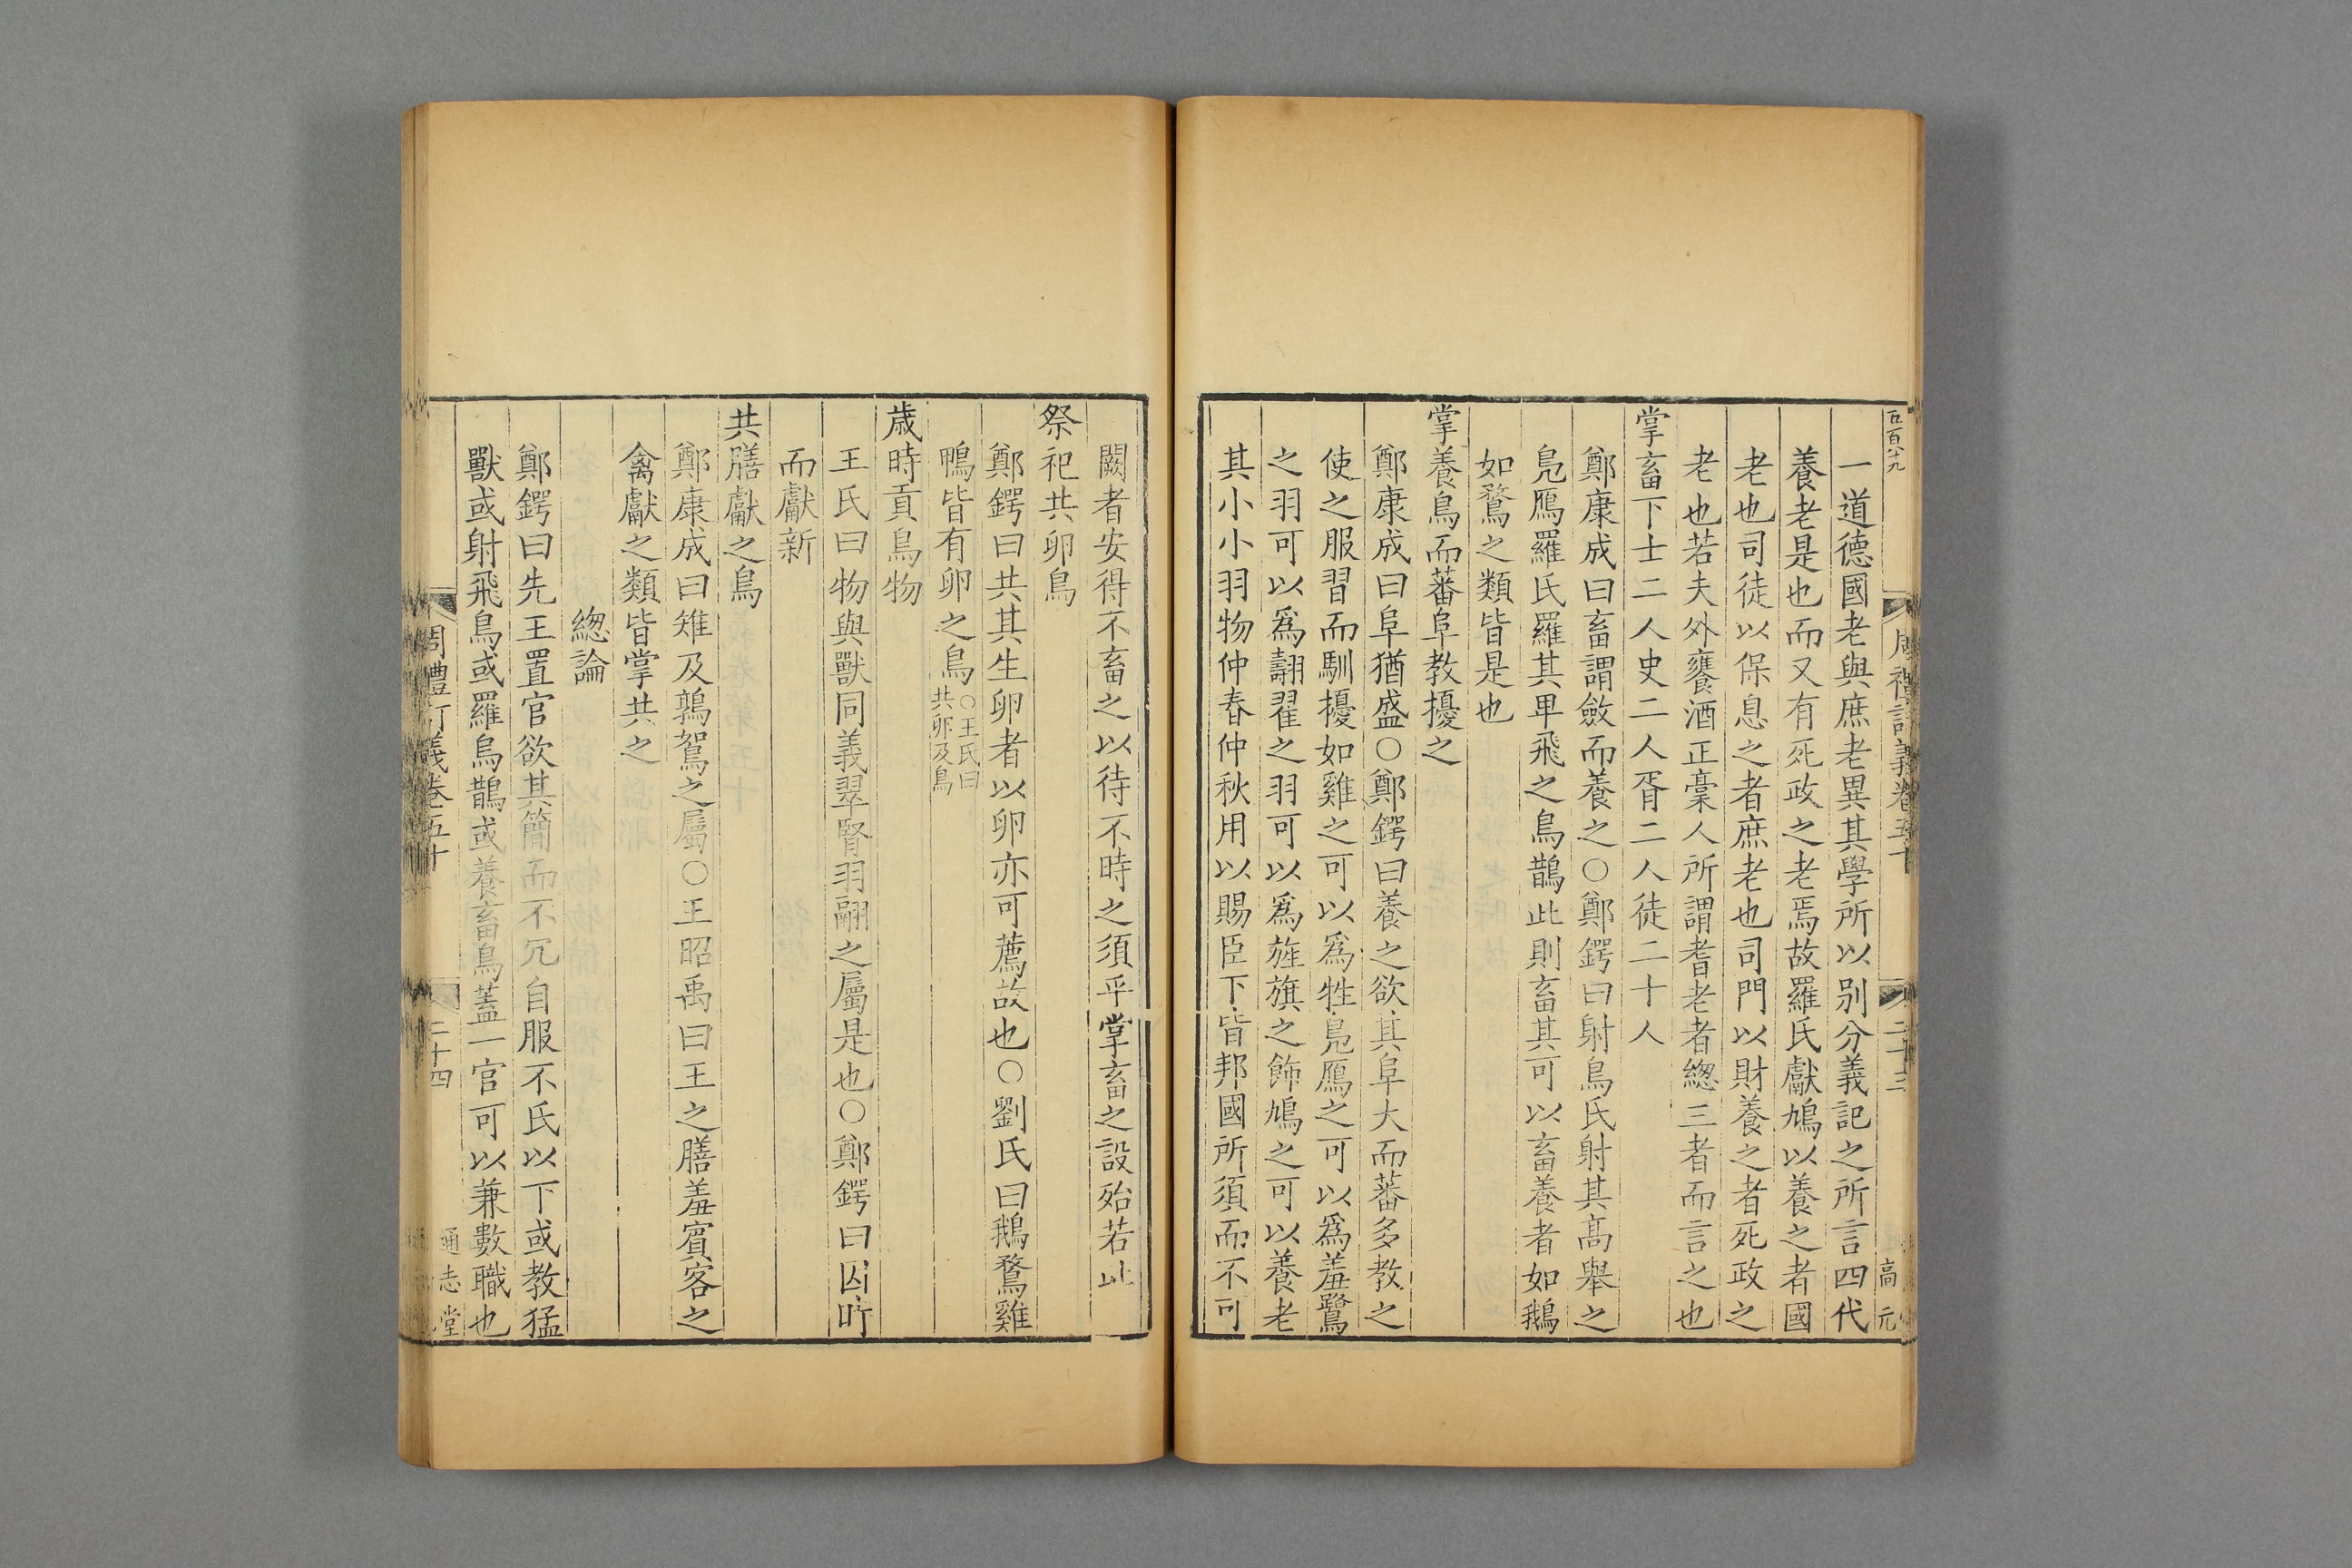 一道德國老與庶老異其學所以别分義記之所言四代
養老是也而又有死政之老焉故羅氏獻鳩以養之者國
老也司徒以保息之者庶老也司門以財養之者死政之
老也若夫外饔酒正槀人所謂耆老者緫三者而言之也
掌畜下士二人史二人胥二人徒二十人
鄭康成曰畜謂斂而養之○鄭鍔曰射鳥氏射其高舉之
鳬鴈羅氏羅其卑飛之鳥鵲此則畜其可以畜養者如鵝
如鶩之類皆是也
掌養鳥而蕃阜教擾之
鄭康成曰阜猶盛○鄭鍔曰養之欲其阜大而蕃多教之
使之服習而馴擾如雞之可以爲牲鳬鴈之可以爲羞鷺
之羽可以爲翿翟之羽可以爲旌旗之飾鳩之可以養老
其小小羽物仲春仲秋用以賜臣下皆邦國所須而不可
周禮訂義卷五十
二十三
高元
闕者安得不畜之以待不時之須乎掌畜之設殆若此
祭祀共卵鳥
鄭鍔曰共其生卵者以卵亦可薦故也○劉氏曰鵝鶩雞
鴨皆有卵之鳥○王氏曰共卵及鳥
歲時貢鳥物
王氏曰物與獸同義翠腎羽翮之屬是也○鄭鍔曰因時
而獻新
共膳獻之鳥
鄭康成曰雉及鶉鴽之屬○王昭禹曰王之膳羞賓客之
禽獻之類皆掌共之
緫論
鄭鍔曰先王置官欲其簡而不冗自服不氏以下或教猛
獸或射飛鳥或羅烏鵲或養畜鳥蓋一官可以兼數職也
周禮訂義卷五十
二十四
通志堂